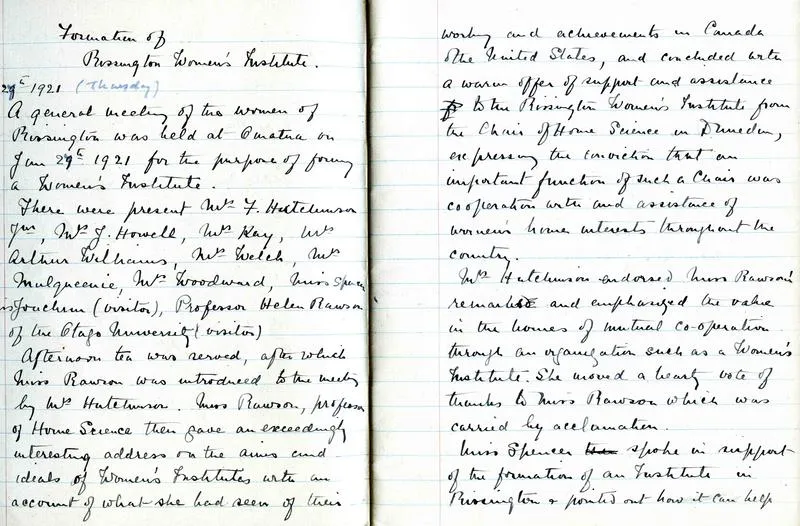 Formation of
Rissington Women's Institute.
29th 1921 (Thursday)
A general meeting of the women of
Rissington was held at Omatua on
Jan 29th 1921 for the purpose of forming
a Women's Institute.
There were present Mrs F. Hutchinson
Jnr, Mrs J. Howell, Mrs Kay, Mrs
Arthur Williams, Mrs Welch, Mrs
Mulqueenie, Mrs Woodward, Miss Spencer
Miss Joachim (visitor), Professor Helen Rawson
of the Otago University (visitor)
Afternoon tea was served, after which
Miss Rawson was introduced to the meeting
by Mrs Hutchinson. Miss Rawson, professor
of Home Science then gave an exceedingly
interesting address on the aims and
ideals of Women's Institutes with an
account of what she had seen of their
working and achievements in Canada
& the United States, and concluded with
a warm offer of support and assistance
to the Rissington Women's Institute from
the Chair of Home Science in Dunedin,
expressing the conviction that an
important function of such a Chair was
cooperation with and assistance of
women's home interests throughout the
country.
Mrs Hutchinson endorsed Miss Rawson's
remarks and emphasized the value
in the homes of mutual co-operation
through an organization such as a Women's
Institute. She moved a hearty vote of
thanks to Miss Rawson which was
carried by acclamation.
Miss Spencer spoke in support
of the formation of an Institute in
Rissington & pointed out how it can help